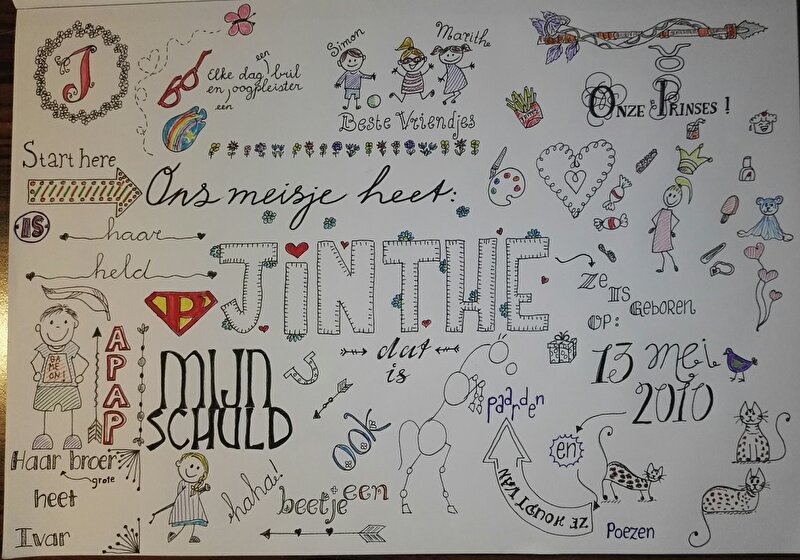 J
Start here
Elke dag een bril
en een oogpleister
Simon
Marithe
Beste Vriendjes
Onze Prinses !
Ons meisje heet:
JiNTHE
Ze
is
Geboren
op:
13 mei
2010
IS
haar
held
P
PAPA
GA
ME
ON!
Haar grote broer
heet
Ivar
dat
is
MIJN
SCHULD
haha!
ook
een
beetje
ZE HOUDT VAN
paarden
en
Poezen